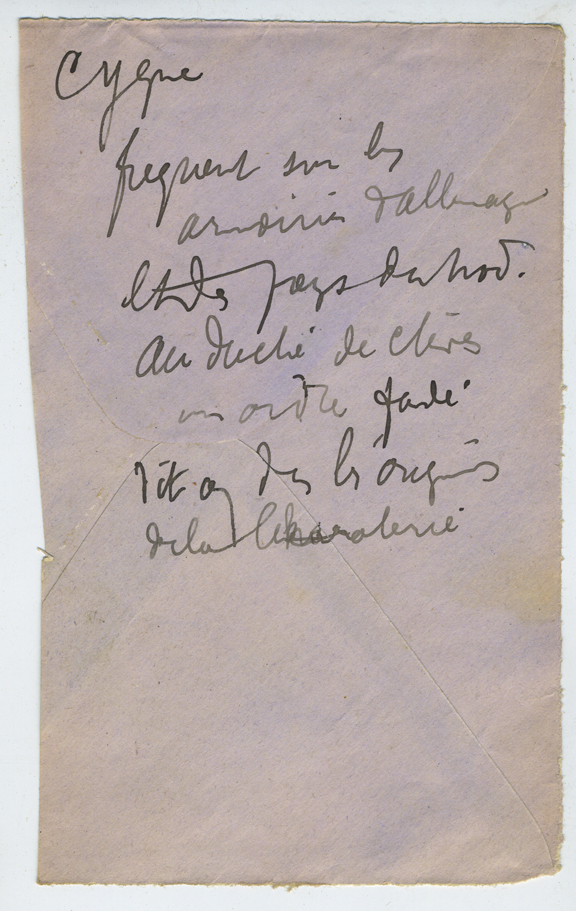 Cygne
frequent sur les
armoiries d'allemagne
et des pays du nord.
Au duché de Clèves
un ordre fondé
dit on dès les origines
de la chevalerie